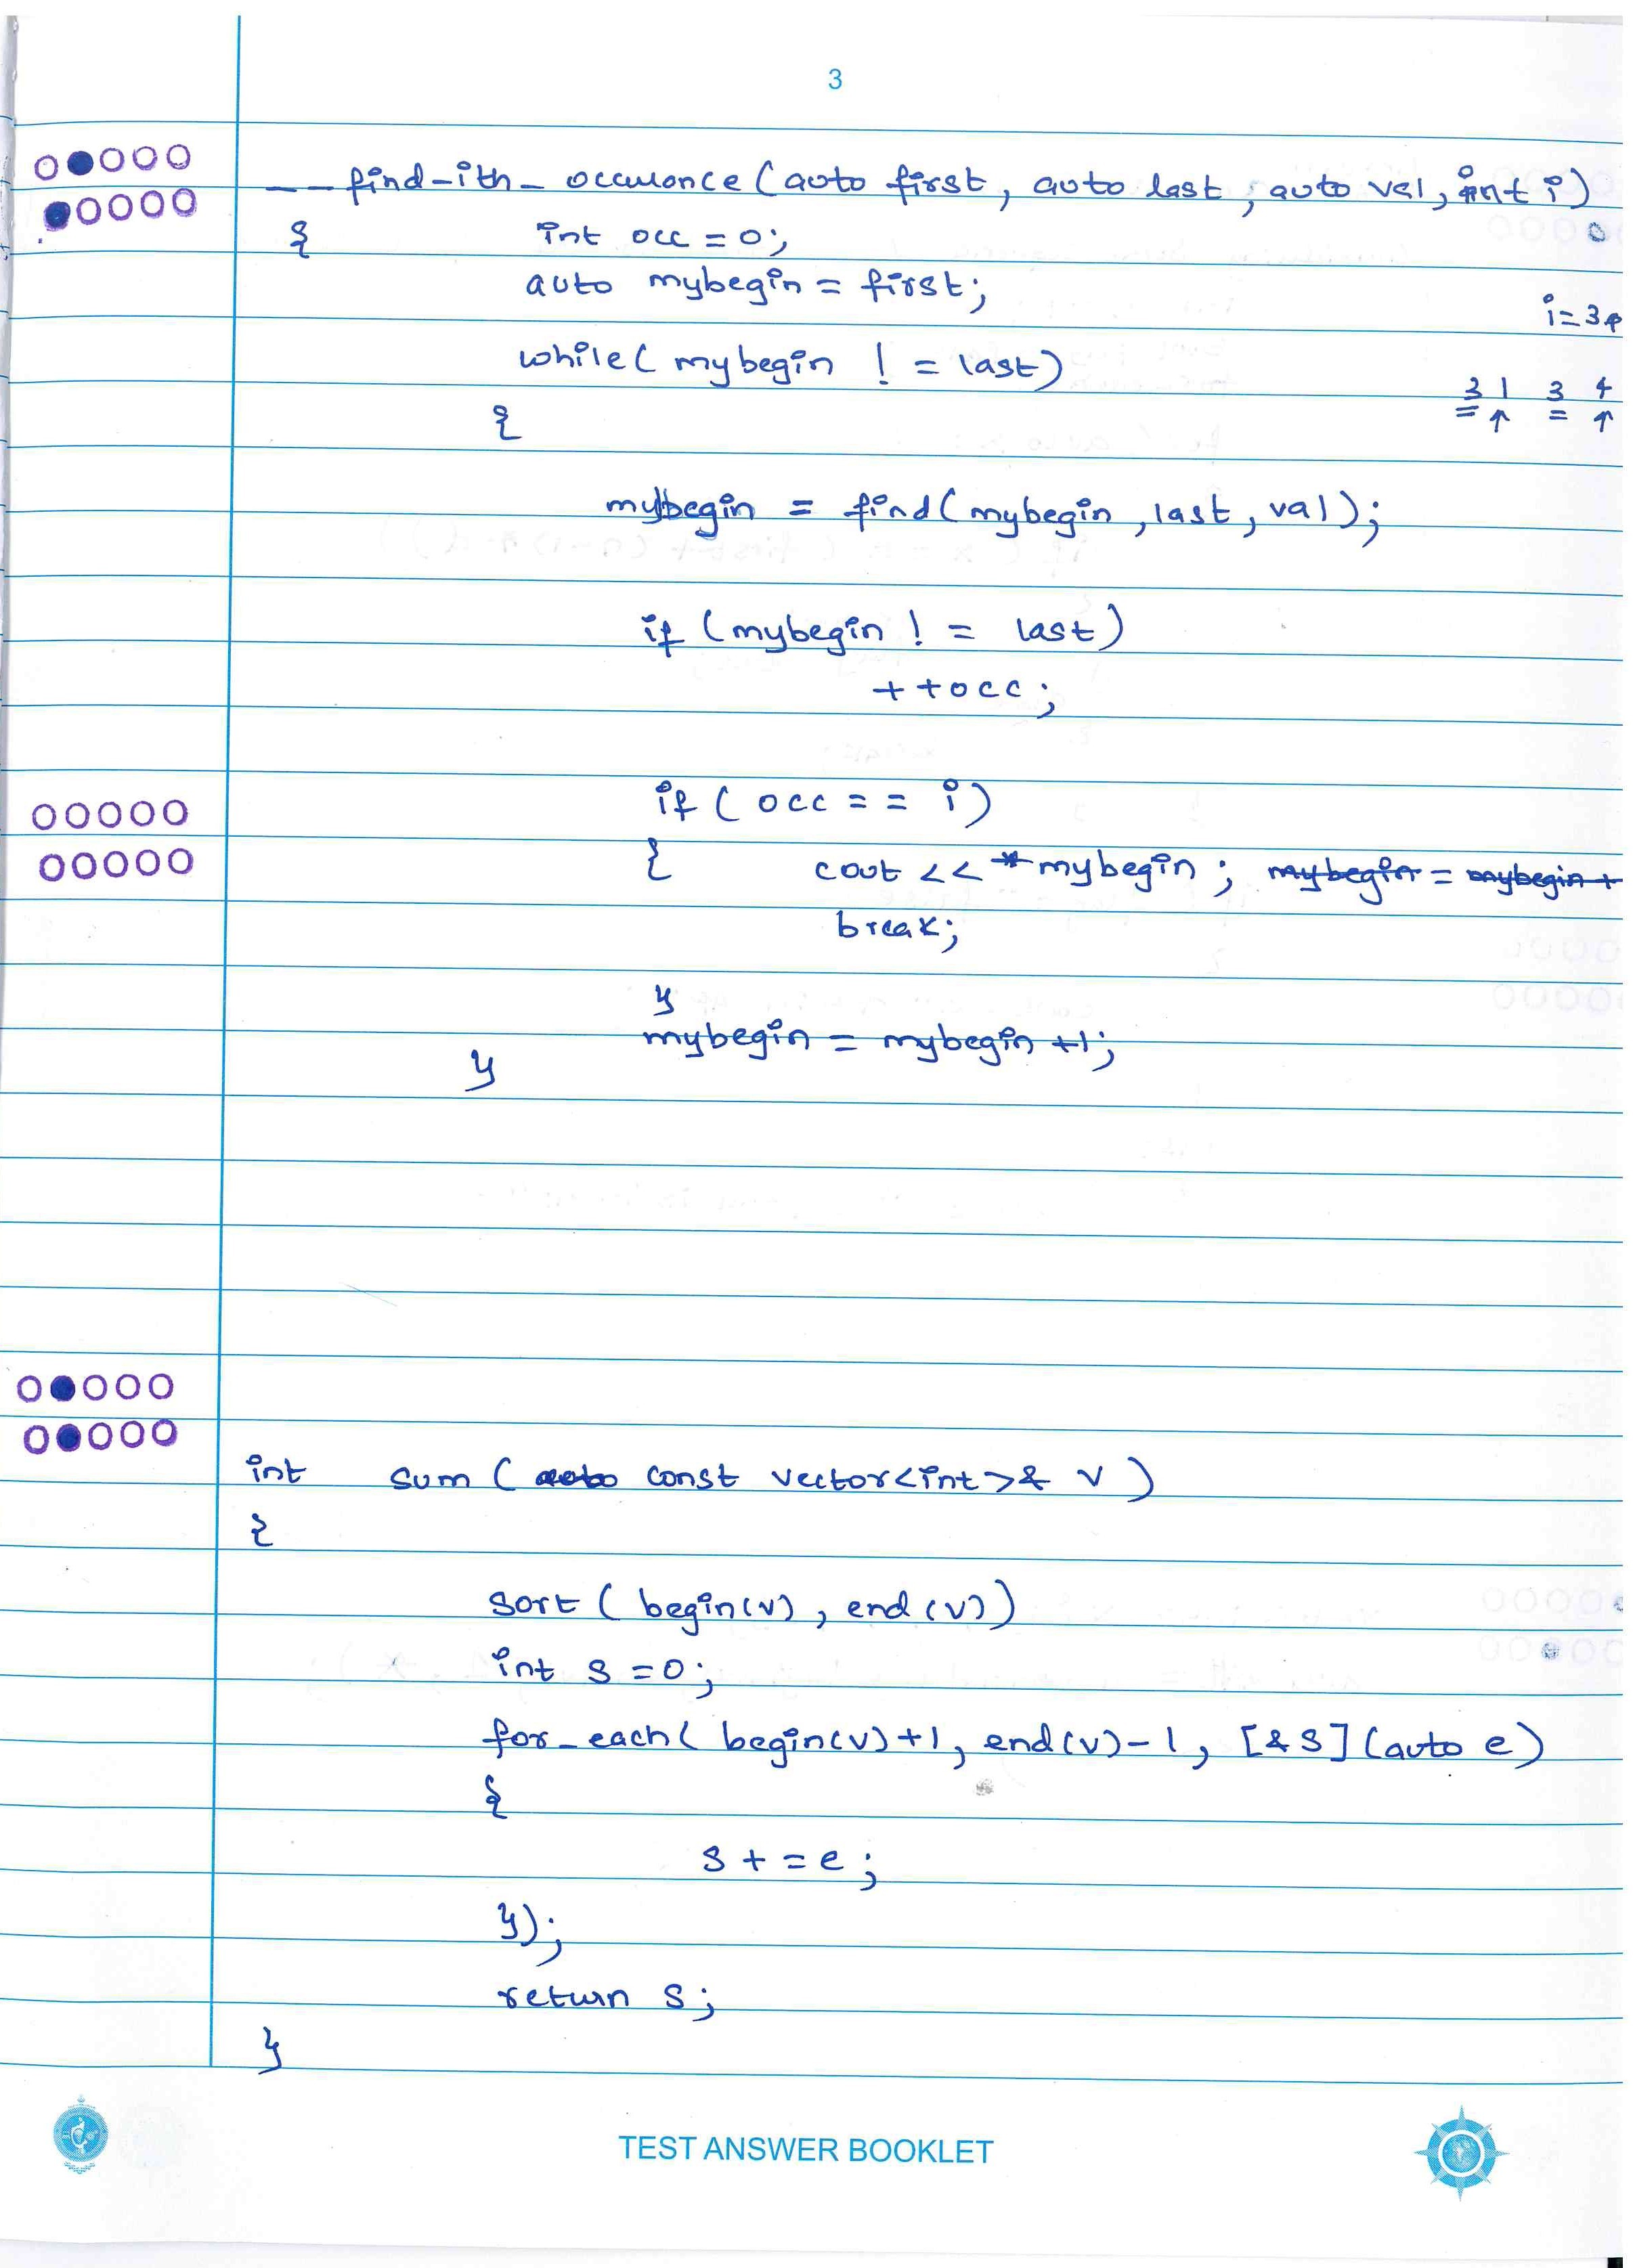 3
__find-ith-occurance(auto first, auto last, auto val, int i)
{ int occ = 0;
auto mybegin = first;
i=3
while( mybegin ! = last)
3 1 3 4
{
mybegin = find(mybegin, last, val);
if (mybegin ! = last)
++occ;
if ( occ == i)
{ cout << *mybegin ; mybegin = mybegin +
break;
}
mybegin = mybegin +1;
}
int sum ( auto const vector<int>& v )
{
sort ( begin(v), end(v))
int s = 0;
for_each( begin(v)+1, end(v)-1, [&s](auto e)
{
s += e;
});
return s;
}
TEST ANSWER BOOKLET